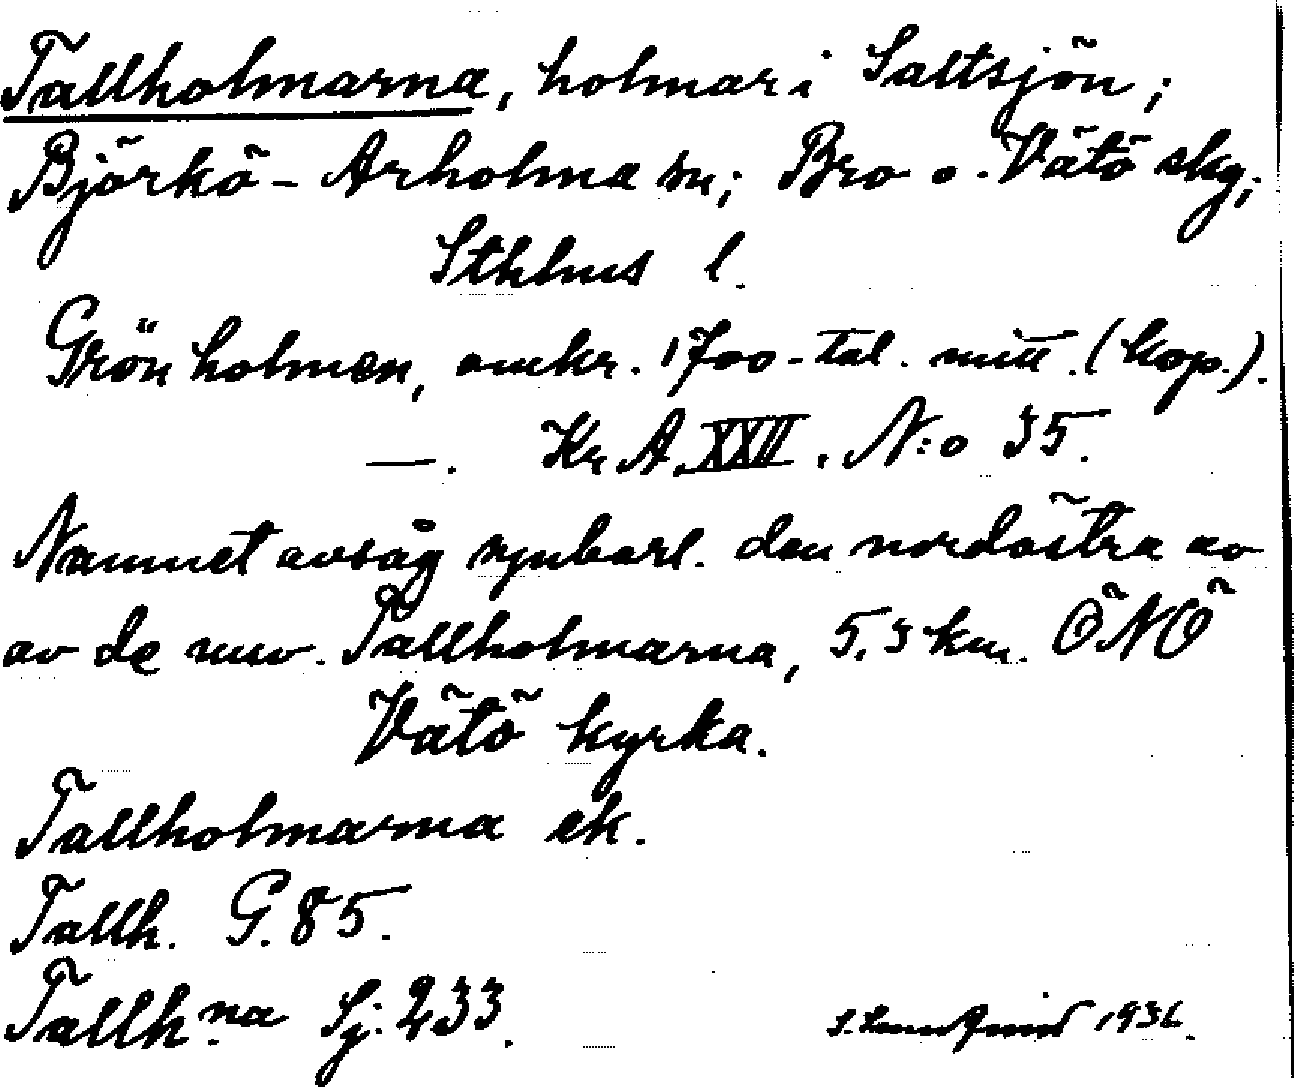 Tallholmarna, holmar i Saltsjön;
Björkö-Arholma sn; Bro o. Vätö skg;
Sthlms l.
Grönholmen, omkr. 1700-tal. mitt. (kop.).
—. Kr A. XXII. N:o 35.
Namnet avsåg synbarl. den nordöstra av
av de nuv. Tallholmarna, 5,5 km. ÖNÖ
Vätö kyrka.
Tallholmarna ek.
Tallh. G. 85.
Tallh:na Sj: 233.
1936.